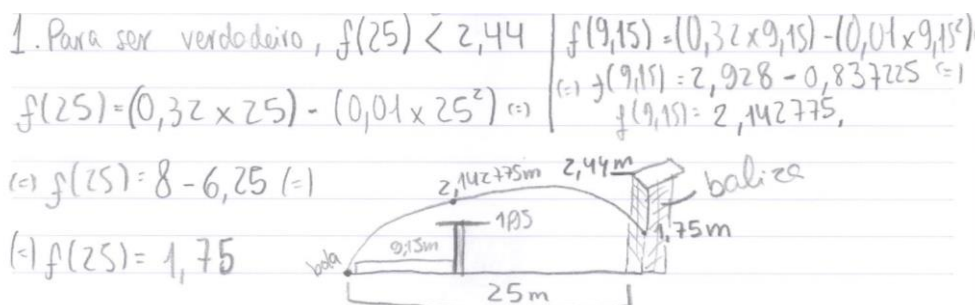 1. Para ser verdadeiro, f(25) < 2,44
f(25)=(0,32 x 25) - (0,01 x 25²) (=)
(=) f(25)= 8 - 6,25 (=)
(=) f(25) = 1,75
f(9,15) = (0,32x9,15)-(0,01x9,15²)
(=) f(9,15) = 2,928 - 0,837225 (=)
f(9,15)= 2,142775,
2,142775m
2,44m
baliza
185
9,15m
1,75m
bola
25m